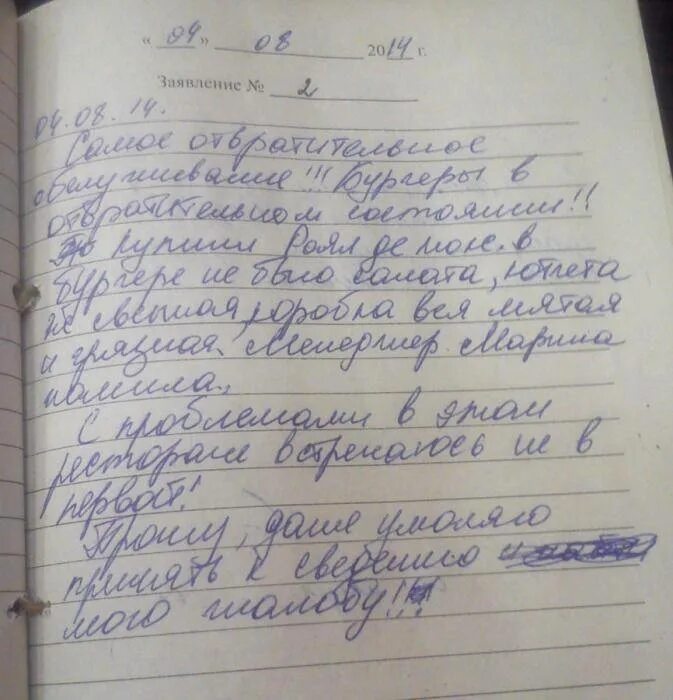 « 04 » 08 2014 г.
Заявление № 2
04.08.14.
Самое отвратительное
обслуживание!!! Бургеры в
отвратительном состоянии!!
Купили Роял де люкс. в
бургере не было салата, котлета
не свежая, коробка вся мятая
и грязная. Менеджер Марина
хамила.
С проблемами в этом
ресторане встречаюсь не в
первой!
Прошу, даже умоляю
принять к сведению
мою жалобу!!!